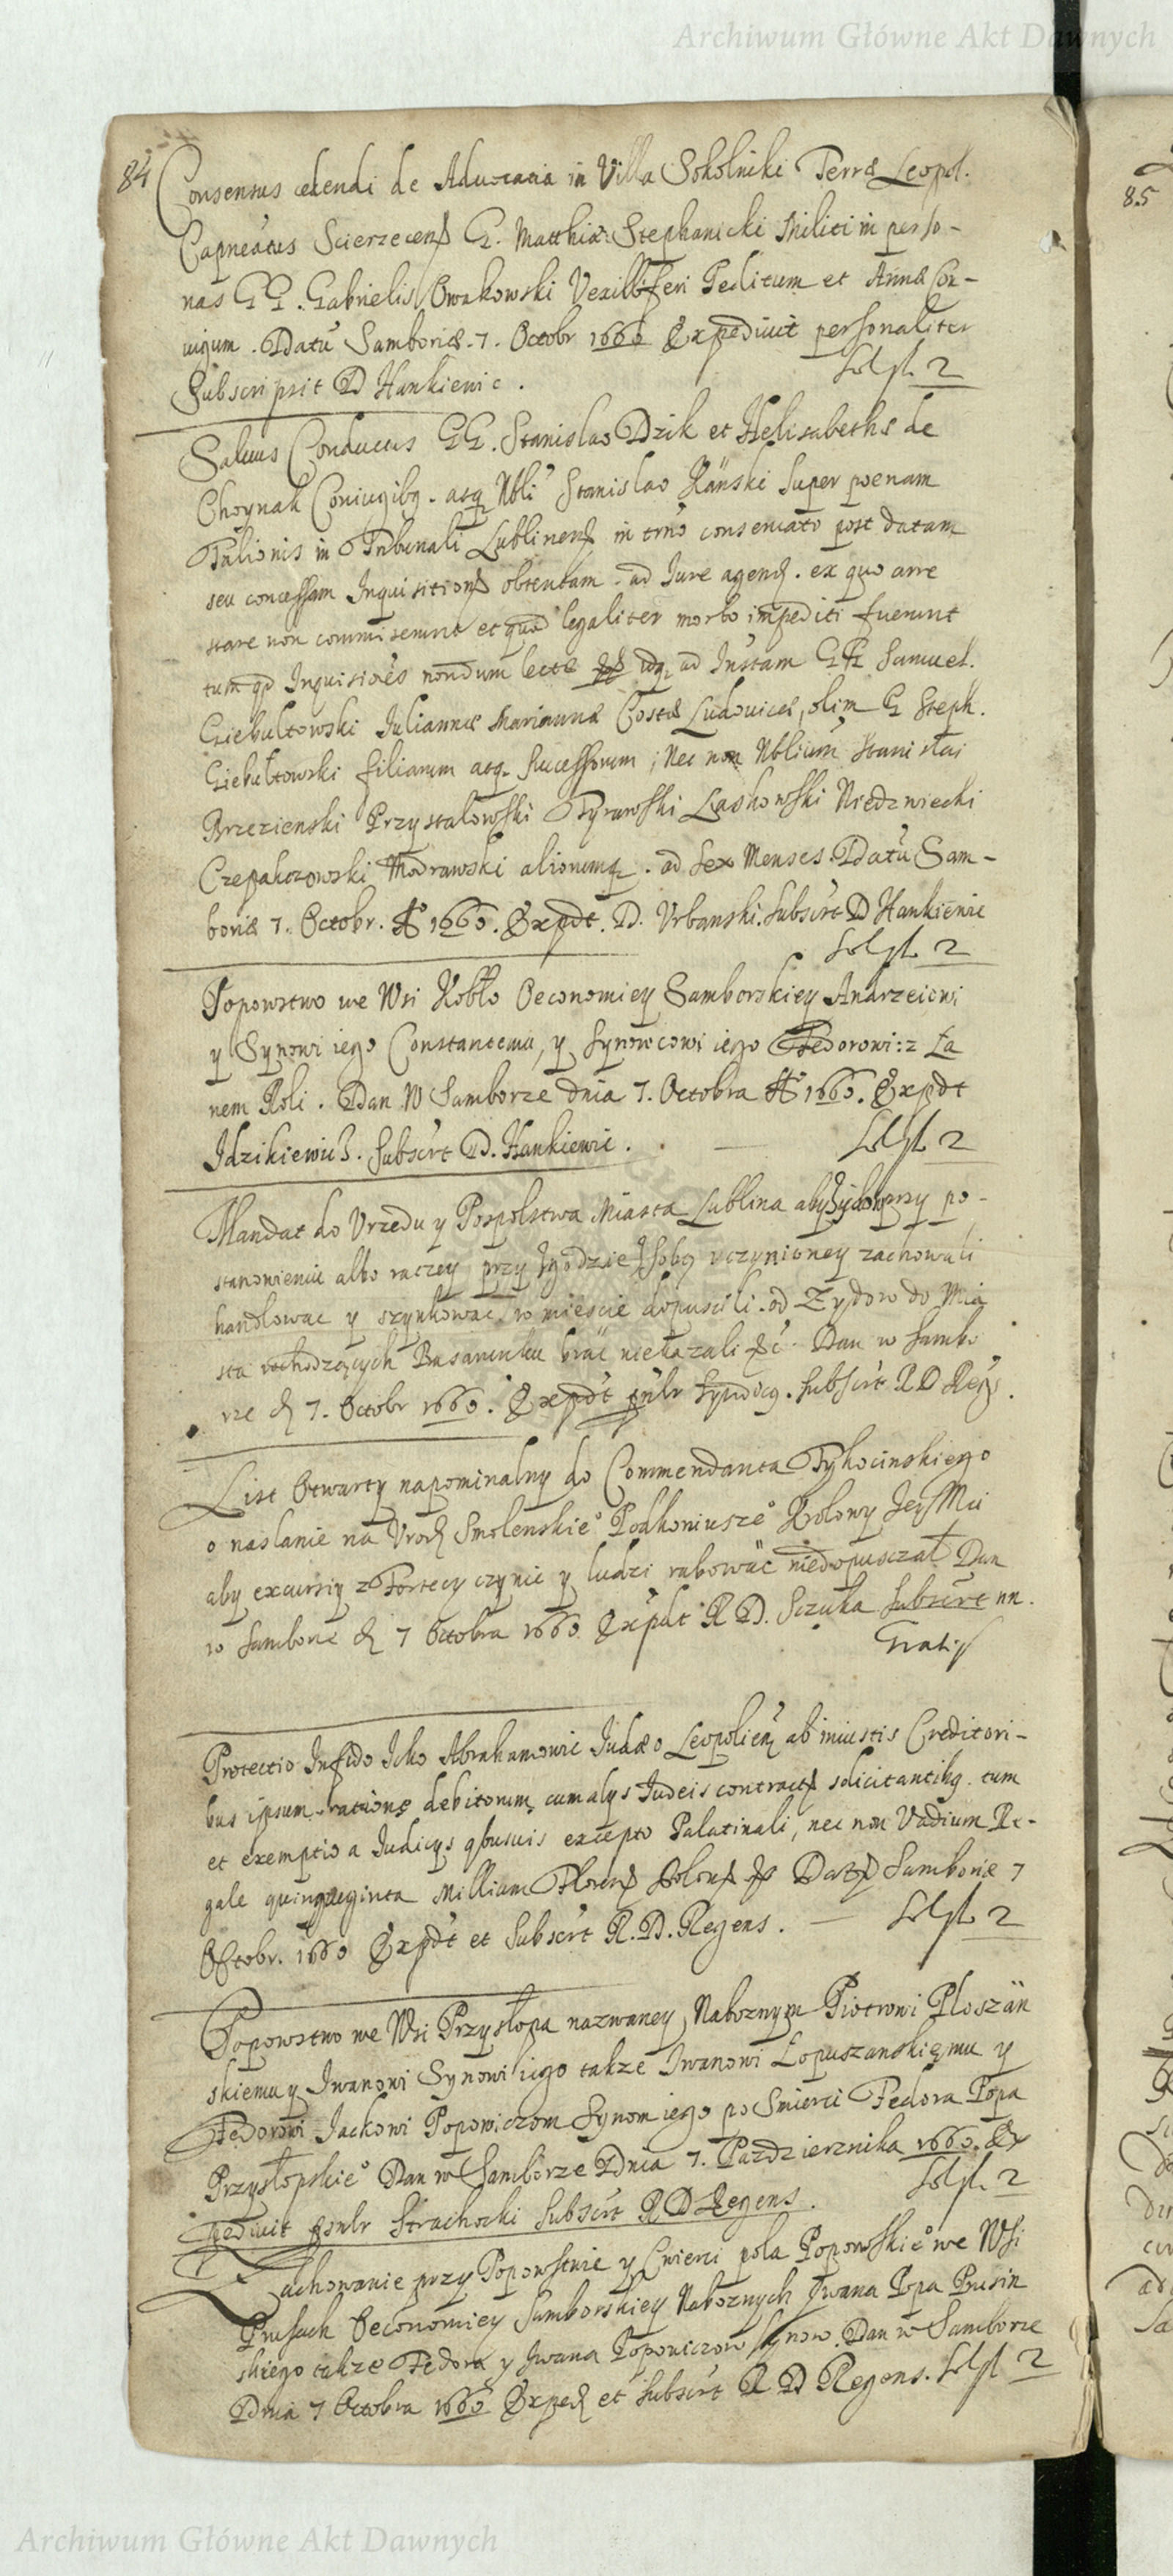 Archiwum Główne Akt Dawnych
84
Consensus cedendi de Advocatia in Villa Sokolniki Terræ Leopol.
Capneatus Scierzecens G. Matthiæ Stephanicki Militi in perso-
nas GG. Gabrielis Owakowski Vexilliferi Peditum et Annæ Con-
iugum. Datū Samboriæ. 7. Octobr 1660 Expedivit personaliter
Subscripsit D Hankiewic. Solst. 2
Salvus Conductus GG. Stanislao Dzik et Helisabethæ de
Choynak Coniugibq. atq Nbli Stanislao Kański Super pœnam
Talionis in Tribunali Lublinens in trno conservato post datam
seu concessam Inquisitions obtentam. ad Iure agend. ex quo arre
stare non commiserunt et quod legaliter morbo impediti fuerunt
tum qd Inquisitiões nondum lectæ idq ad Instam GG Samuel.
Giebultowski Iuliannæ Mariannæ Costæ Ludovicæ, olim G Steph.
Giebułtowski filiarum atq. Successorum; Nec non Nblium Stanisłai
Brzezienski Przystałowski Tyrawski Laskowski Niedzwiecki
Czepakowski Modrawski aliorumq. ad sex Menses. Datū Sam-
boriæ 7. Octobr. Aº 1660. Expdt. D. Vrbanski. Subscrt D Hankiewic
Solst. 2
Popowstwo we Wsi Kobło Oeconomiey Samborskiey Andrzeiowi
y Synowi iego Constantemu, y Synowcowi iego Fedorowi: z Ła
nem Roli. Dan W Samborze dnia 7. Octobra Aº 1660. Expdt
Idzikiewicz. Subscrt D. Hankiewic. Solst. 2
Mandat do Vrzedu y Pospolstwa Miasta Lublina aby Zydow przy po-
stanowieniu albo raczey przy Zgodzie z sobą vczynioney zachowali
handlowac y szynkowac w miescie dopuscili. od Zydow do Mia
sta wchodzących Basarunku brać niekazali &c. Dan w Sambo
rze d 7. Octobr 1660. Expdt pnlr Syndicq. Subscrt R D Regs.
List Otwarty napominalny do Commendanta Tykocinskiego
o naslanie na Vrod Smolenskieº Podkoniuszeº Krolowy Jey Mci
aby excursiy z Fortecy czynic y ludzi rabowac niedopusczał Dan
w Samborze d 7 Octobra 1660 Expdt R D. Sczuka Subscrt nn.
Gratis
Protectio Infido Icko Abrahamowic Iudæo Leopoliens ab iniustis Creditori-
bus ipsum ratione debitorum, cum alys Iudeis contract solicitantibq. tum
et exemptio a Iudicys qbusvis excepto Palatinali, nec non Vadium Re-
gale quinquaginta Millium Floren Polon Dat Samboriæ 7
Octobr. 1660 Expdt et Subscrt R. D. Regens. Solst. 2
Popowstwo we Wsi Przysłopa nazwaney, Naboznym Piotrowi Płoszań
skiemu y Iwanowi Synowi iego takze Iwanowi Łopuszanskiemu y
Fedorowi Iackowi Popowiczom Synom iego po Smierci Fedora Popa
Przysłopskieº Dan w Samborze Dnia 7. Pazdziernika 1660. Ex
pedivit psnlr Strachocki Subscrt R D Regens. Solst. 2
Zachowanie przy Popowstwie y Cwierci pola Popowskieº we Wsi
Prusach Oeconomiey Samborskiey Naboznych Iwana Popa Prusin
skiego takze Fedora y Iwana Popowiczow Synow. Dan w Samborze
Dnia 7 Octobra 1660 Exped et Subscrt R D Regens. Solst 2
85
Archiwum Główne Akt Dawnych